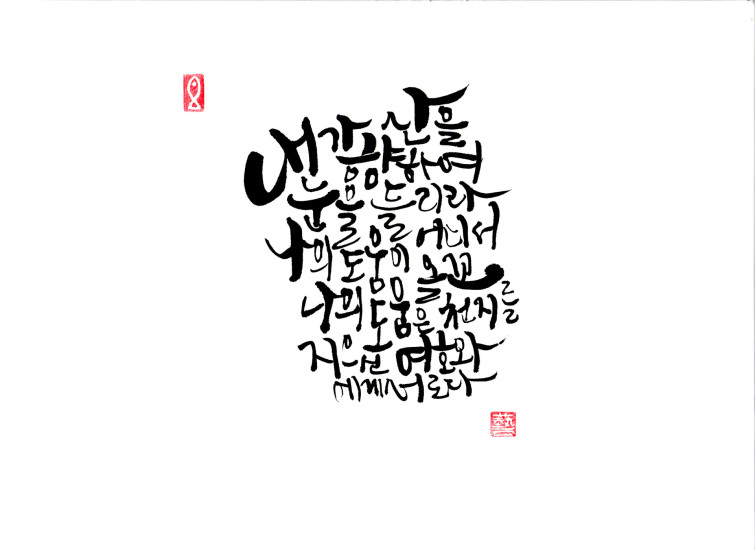 내가 산을
향하여
눈을 들리라
나의 도움이 어디서
올꼬
나의 도움은 천지를
지으신 여호와
에게서로다